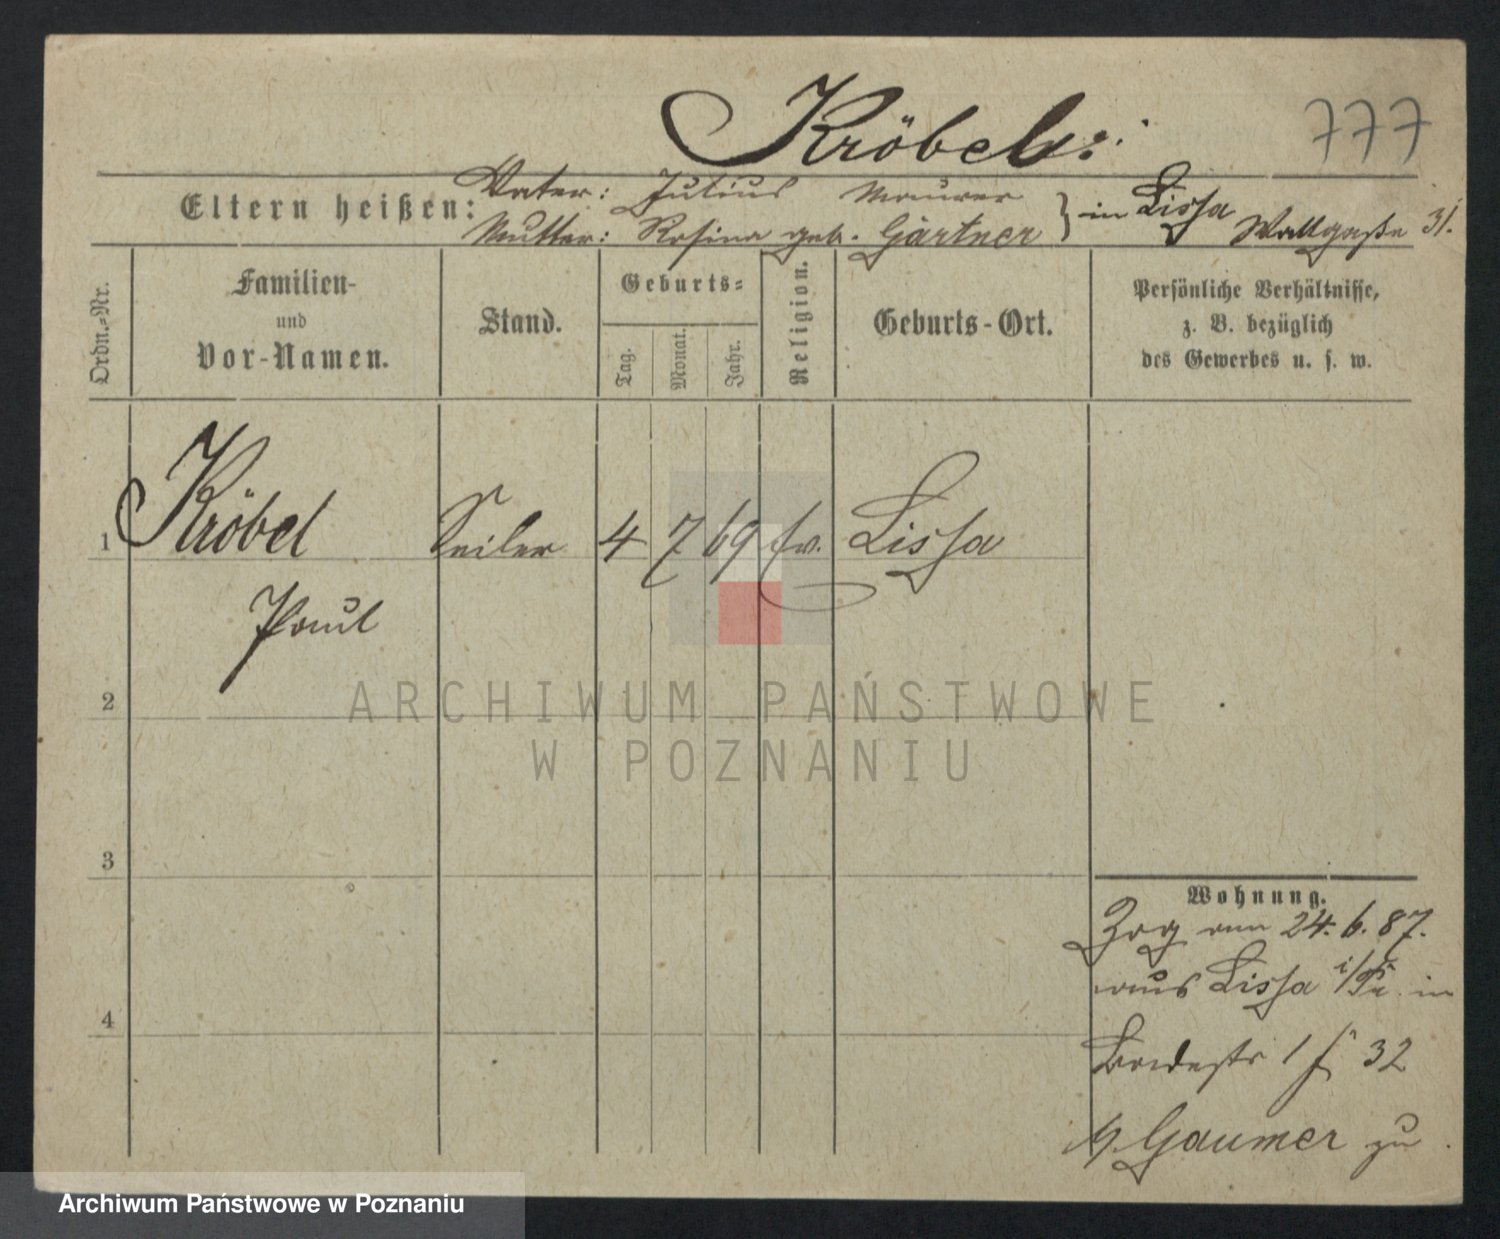 Kröbel:
777
Eltern heißen:
Vater: Julius Maurer
Mutter: Rosina geb. Gärtner
} in Lissa Wallgaße 31.
Ordn.-Nr.
Familien-
und
Vor-Namen.
Stand.
Geburts-
Tag.
Monat.
Jahr.
Religion.
Geburts-Ort.
Persönliche Verhältnisse,
z. B. bezüglich
des Gewerbes u. s. w.
1 Kröbel Seiler 4 7 69 ev. Lissa
Paul
2
3
4
Wohnung.
Zog am 24. 6. 87.
aus Lissa i/P. in
1 32
Gaumer zu
ARCHIWUM PAŃSTWOWE
W POZNANIU
Archiwum Państwowe w Poznaniu